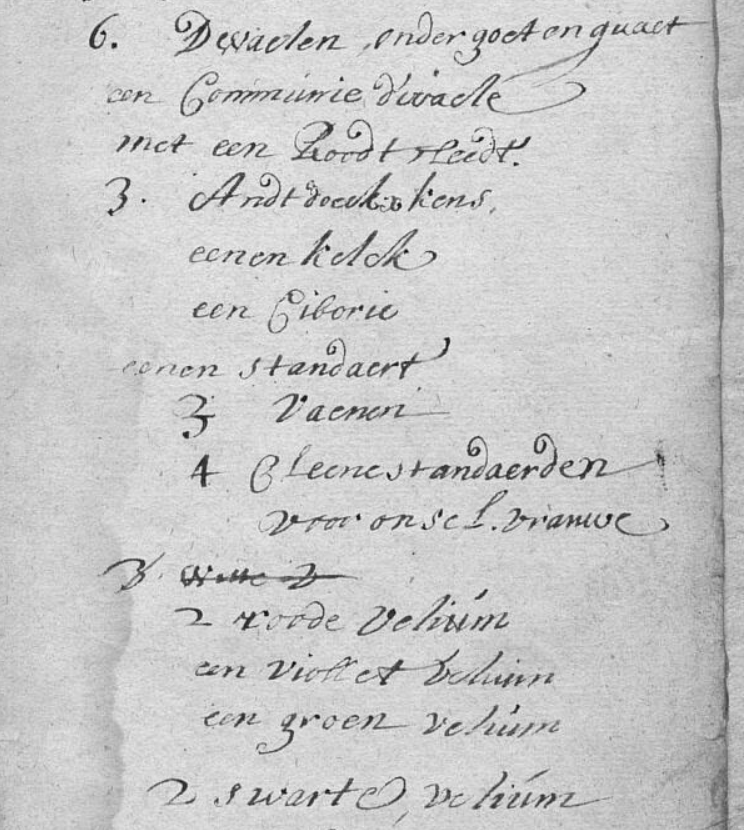 6. Dwaelen onder goet en quaet
een Communie dwaele
met een Roodt cleedt.
3. Andtdoeckxkens,
eenen kelck
een Ciborie
eenen standaert
3 Vaenen
4 Cleene standaerden
voor onse L. vrauwe
3 witte v
2 roode veliúm
een viollet veliúm
een groen veliúm
2 swarte, veliúm